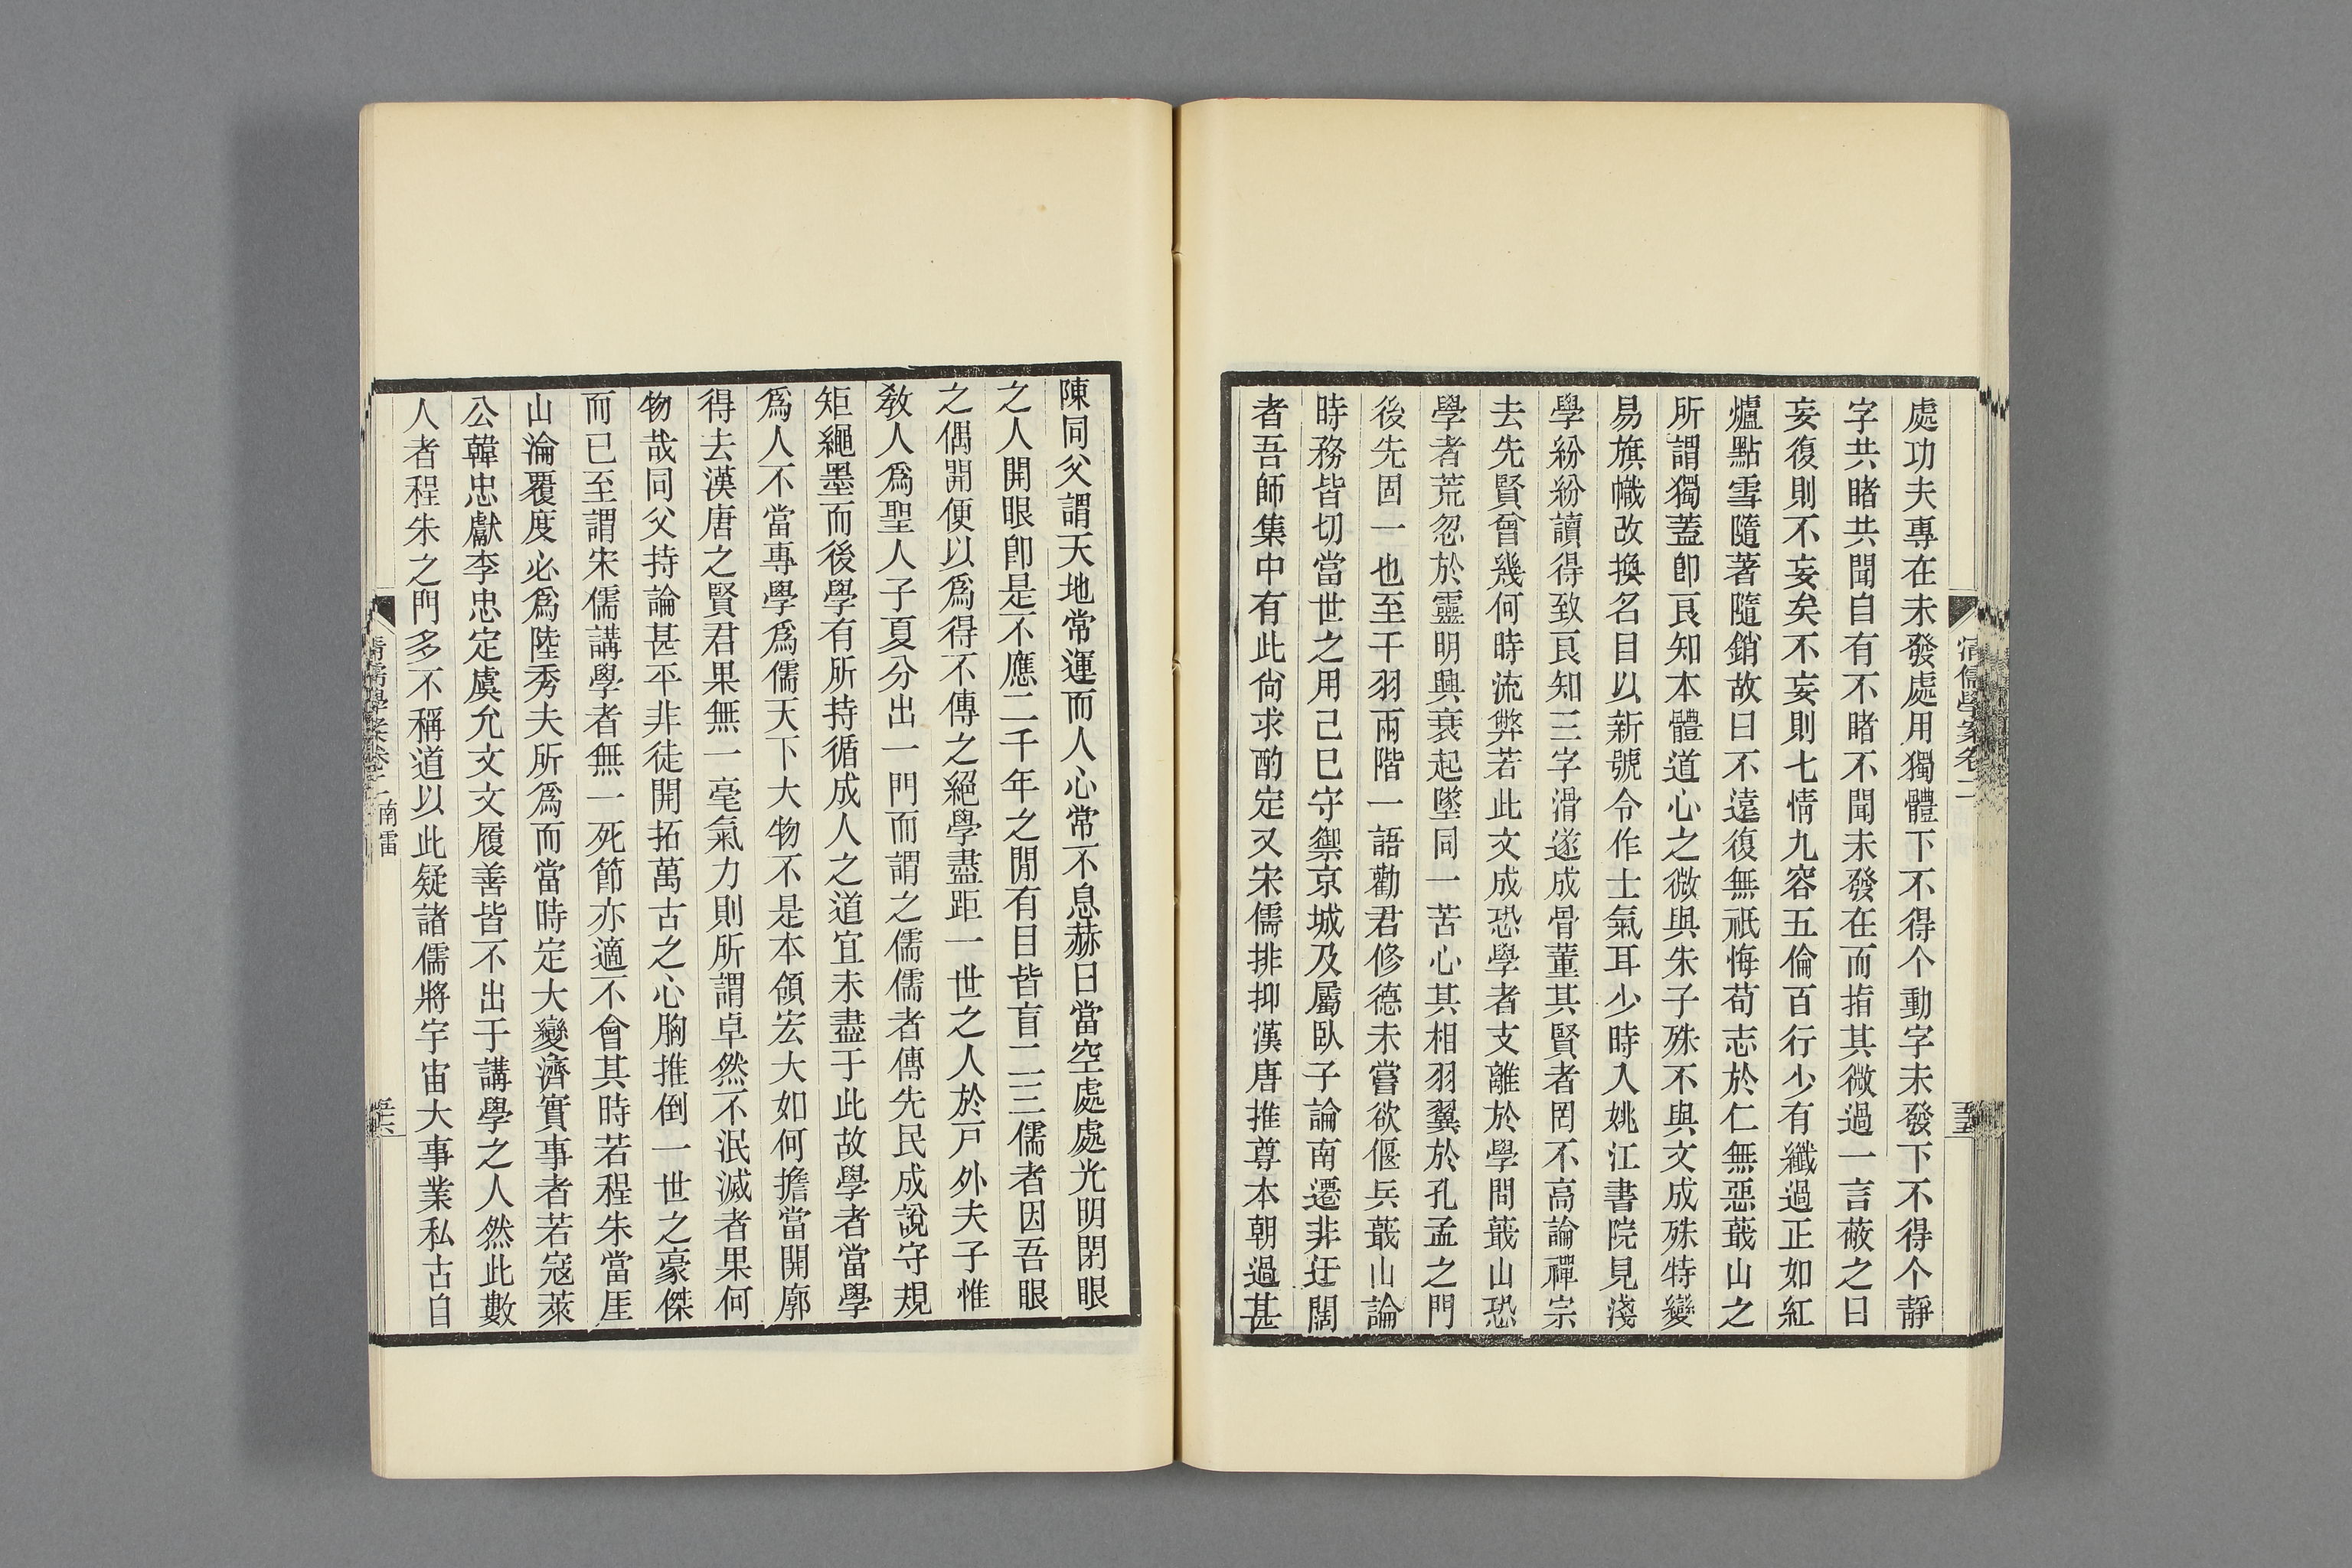 清儒學案卷二
處功夫專在未發處用獨體下不得个動字未發下不得个靜
字共睹共聞自有不睹不聞未發在而指其微過一言蔽之曰
妄復則不妄矣不妄則七情九容五倫百行少有纖過正如紅
爐點雪隨著隨銷故曰不遠復無祇悔苟志於仁無惡蕺山之
所謂獨蓋卽良知本體道心之微與朱子殊不與文成殊特變
易旗幟改換名目以新號令作士氣耳少時入姚江書院見淺
學紛紛讀得致良知三字滑遂成骨董其賢者罔不高論禪宗
去先賢曾幾何時流弊若此文成恐學者支離於學問蕺山恐
學者荒忽於靈明興衰起墜同一苦心其相羽翼於孔孟之門
後先固一也至干羽兩階一語勸君修德未嘗欲偃兵蕺山論
時務皆切當世之用己巳守禦京城及屬臥子論南遷非迂闊
者吾師集中有此尙求酌定又宋儒排抑漢唐推尊本朝過甚
陳同父謂天地常運而人心常不息赫日當空處處光明閉眼
之人開眼卽是不應二千年之閒有目皆盲二三儒者因吾眼
之偶開便以爲得不傳之絕學盡距一世之人於戸外夫子惟
敎人爲聖人子夏分出一門而謂之儒儒者傳先民成說守規
矩繩墨而後學有所持循成人之道宜未盡于此故學者當學
爲人不當專學爲儒天下大物不是本領宏大如何擔當開廓
得去漢唐之賢君果無一毫氣力則所謂卓然不泯滅者果何
物哉同父持論甚平非徒開拓萬古之心胸推倒一世之豪傑
而已至謂宋儒講學者無一死節亦適不會其時若程朱當厓
山淪覆度必爲陸秀夫所爲而當時定大變濟實事者若寇萊
公韓忠獻李忠定虞允文文履善皆不出于講學之人然此數
人者程朱之門多不稱道以此疑諸儒將宇宙大事業私古自
清儒學案卷二 南雷